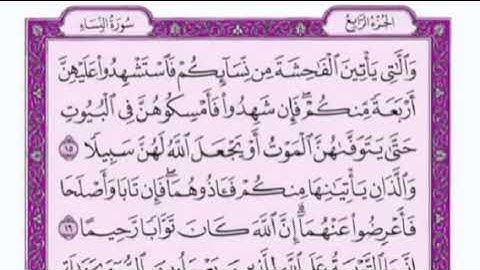 الجزء الرابع
سورة النساء
وَٱلَّٰتِي يَأۡتِينَ ٱلۡفَٰحِشَةَ مِن نِّسَآئِكُمۡ فَٱسۡتَشۡهِدُواْ عَلَيۡهِنَّ
أَرۡبَعَةٗ مِّنكُمۡۖ فَإِن شَهِدُواْ فَأَمۡسِكُوهُنَّ فِي ٱلۡبُيُوتِ
حَتَّىٰ يَتَوَفَّىٰهُنَّ ٱلۡمَوۡتُ أَوۡ يَجۡعَلَ ٱللَّهُ لَهُنَّ سَبِيلٗا ١٥
وَٱلَّذَانِ يَأۡتِيَٰنِهَا مِنكُمۡ فَـَٔاذُوهُمَاۖ فَإِن تَابَا وَأَصۡلَحَا
فَأَعۡرِضُواْ عَنۡهُمَآۗ إِنَّ ٱللَّهَ كَانَ تَوَّابٗا رَّحِيمًا ١٦